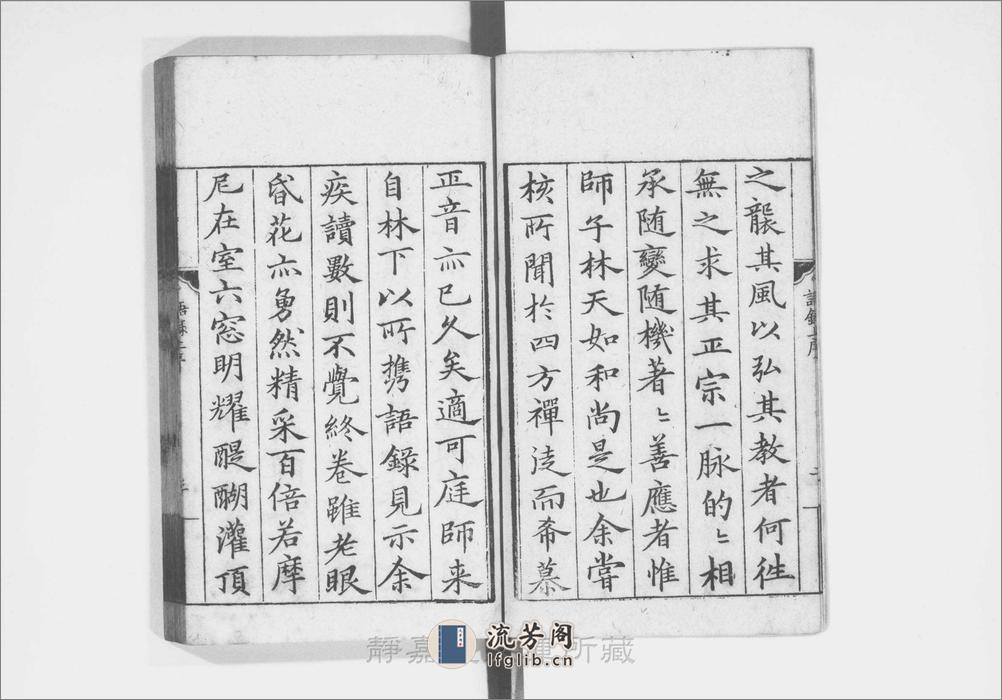 之襲其風以弘其教者何徃
無之求其正宗一脉的〻相
承随變随機著〻善應者惟
師子林天如和尚是也余嘗
核所聞於四方禪
而希慕
正音亦已久矣適可庭師来
自林下以所携語錄見示余
疾讀數則不覺終卷雖老眼
昏花亦勇然精采百倍若摩
尼在室六窓明耀醍醐灌頂
語錄上序
二
語錄上序
三
流芳阁
lfglib.cn
靜嘉
所藏